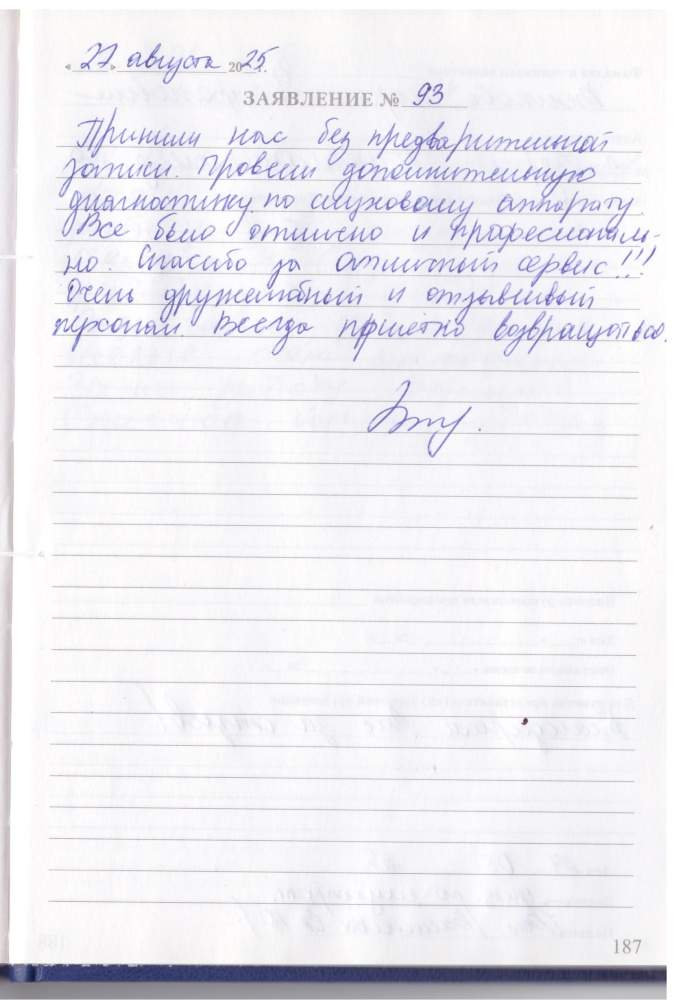 « 27 » августа 2025 г.
ЗАЯВЛЕНИЕ № 93
Приняли нас без предварительной
записи. Провели дополнительную
диагностику по слуховому аппарату.
Все было отлично и професиональ-
но. Спасибо за отличный сервис!!!
Очень дружелюбный и отзывчивый
персонал Всегда приятно возвращаться.
187